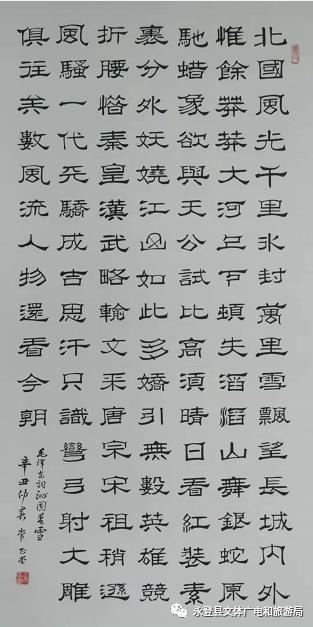 北國風光千里氷封萬里雪飄望長城內外
惟餘莽莽大河上下頓失滔滔山舞銀蛇原
馳蜡象欲與天公試比高須晴日看紅裝素
裹分外妖嬈江山如此多嬌引無數英雄競
折腰惜秦皇漢武略輸文采唐宗宋祖稍遜
風騷一代天驕成吉思汗只識彎弓射大雕
俱往矣數風流人物還看今朝
毛澤東詞沁園春雪
辛丑仲春
永登县文体广电和旅游局